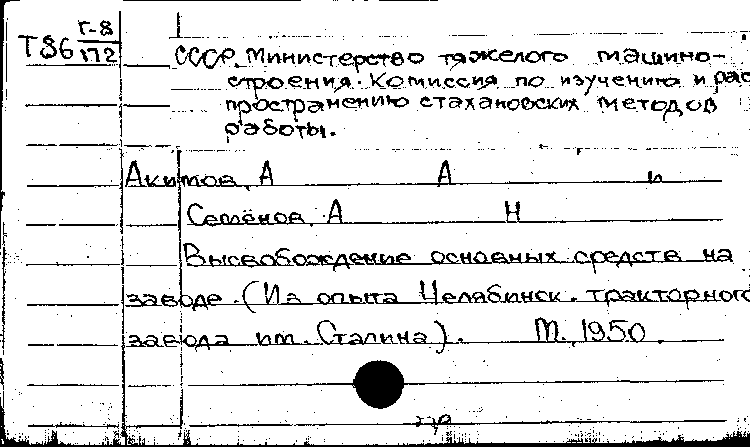 Т86 Г-8
172
СССР. Министерство тяжелого машино-
строения. Комиссия по изучению и рас
пространению стахановских методов
работы.
Акимов, А А и
Семёнов, А Н
Высвобождение основных средств на
заводе. (Из опыта Челябинск. тракторного
завода им. Сталина). М., 1950.